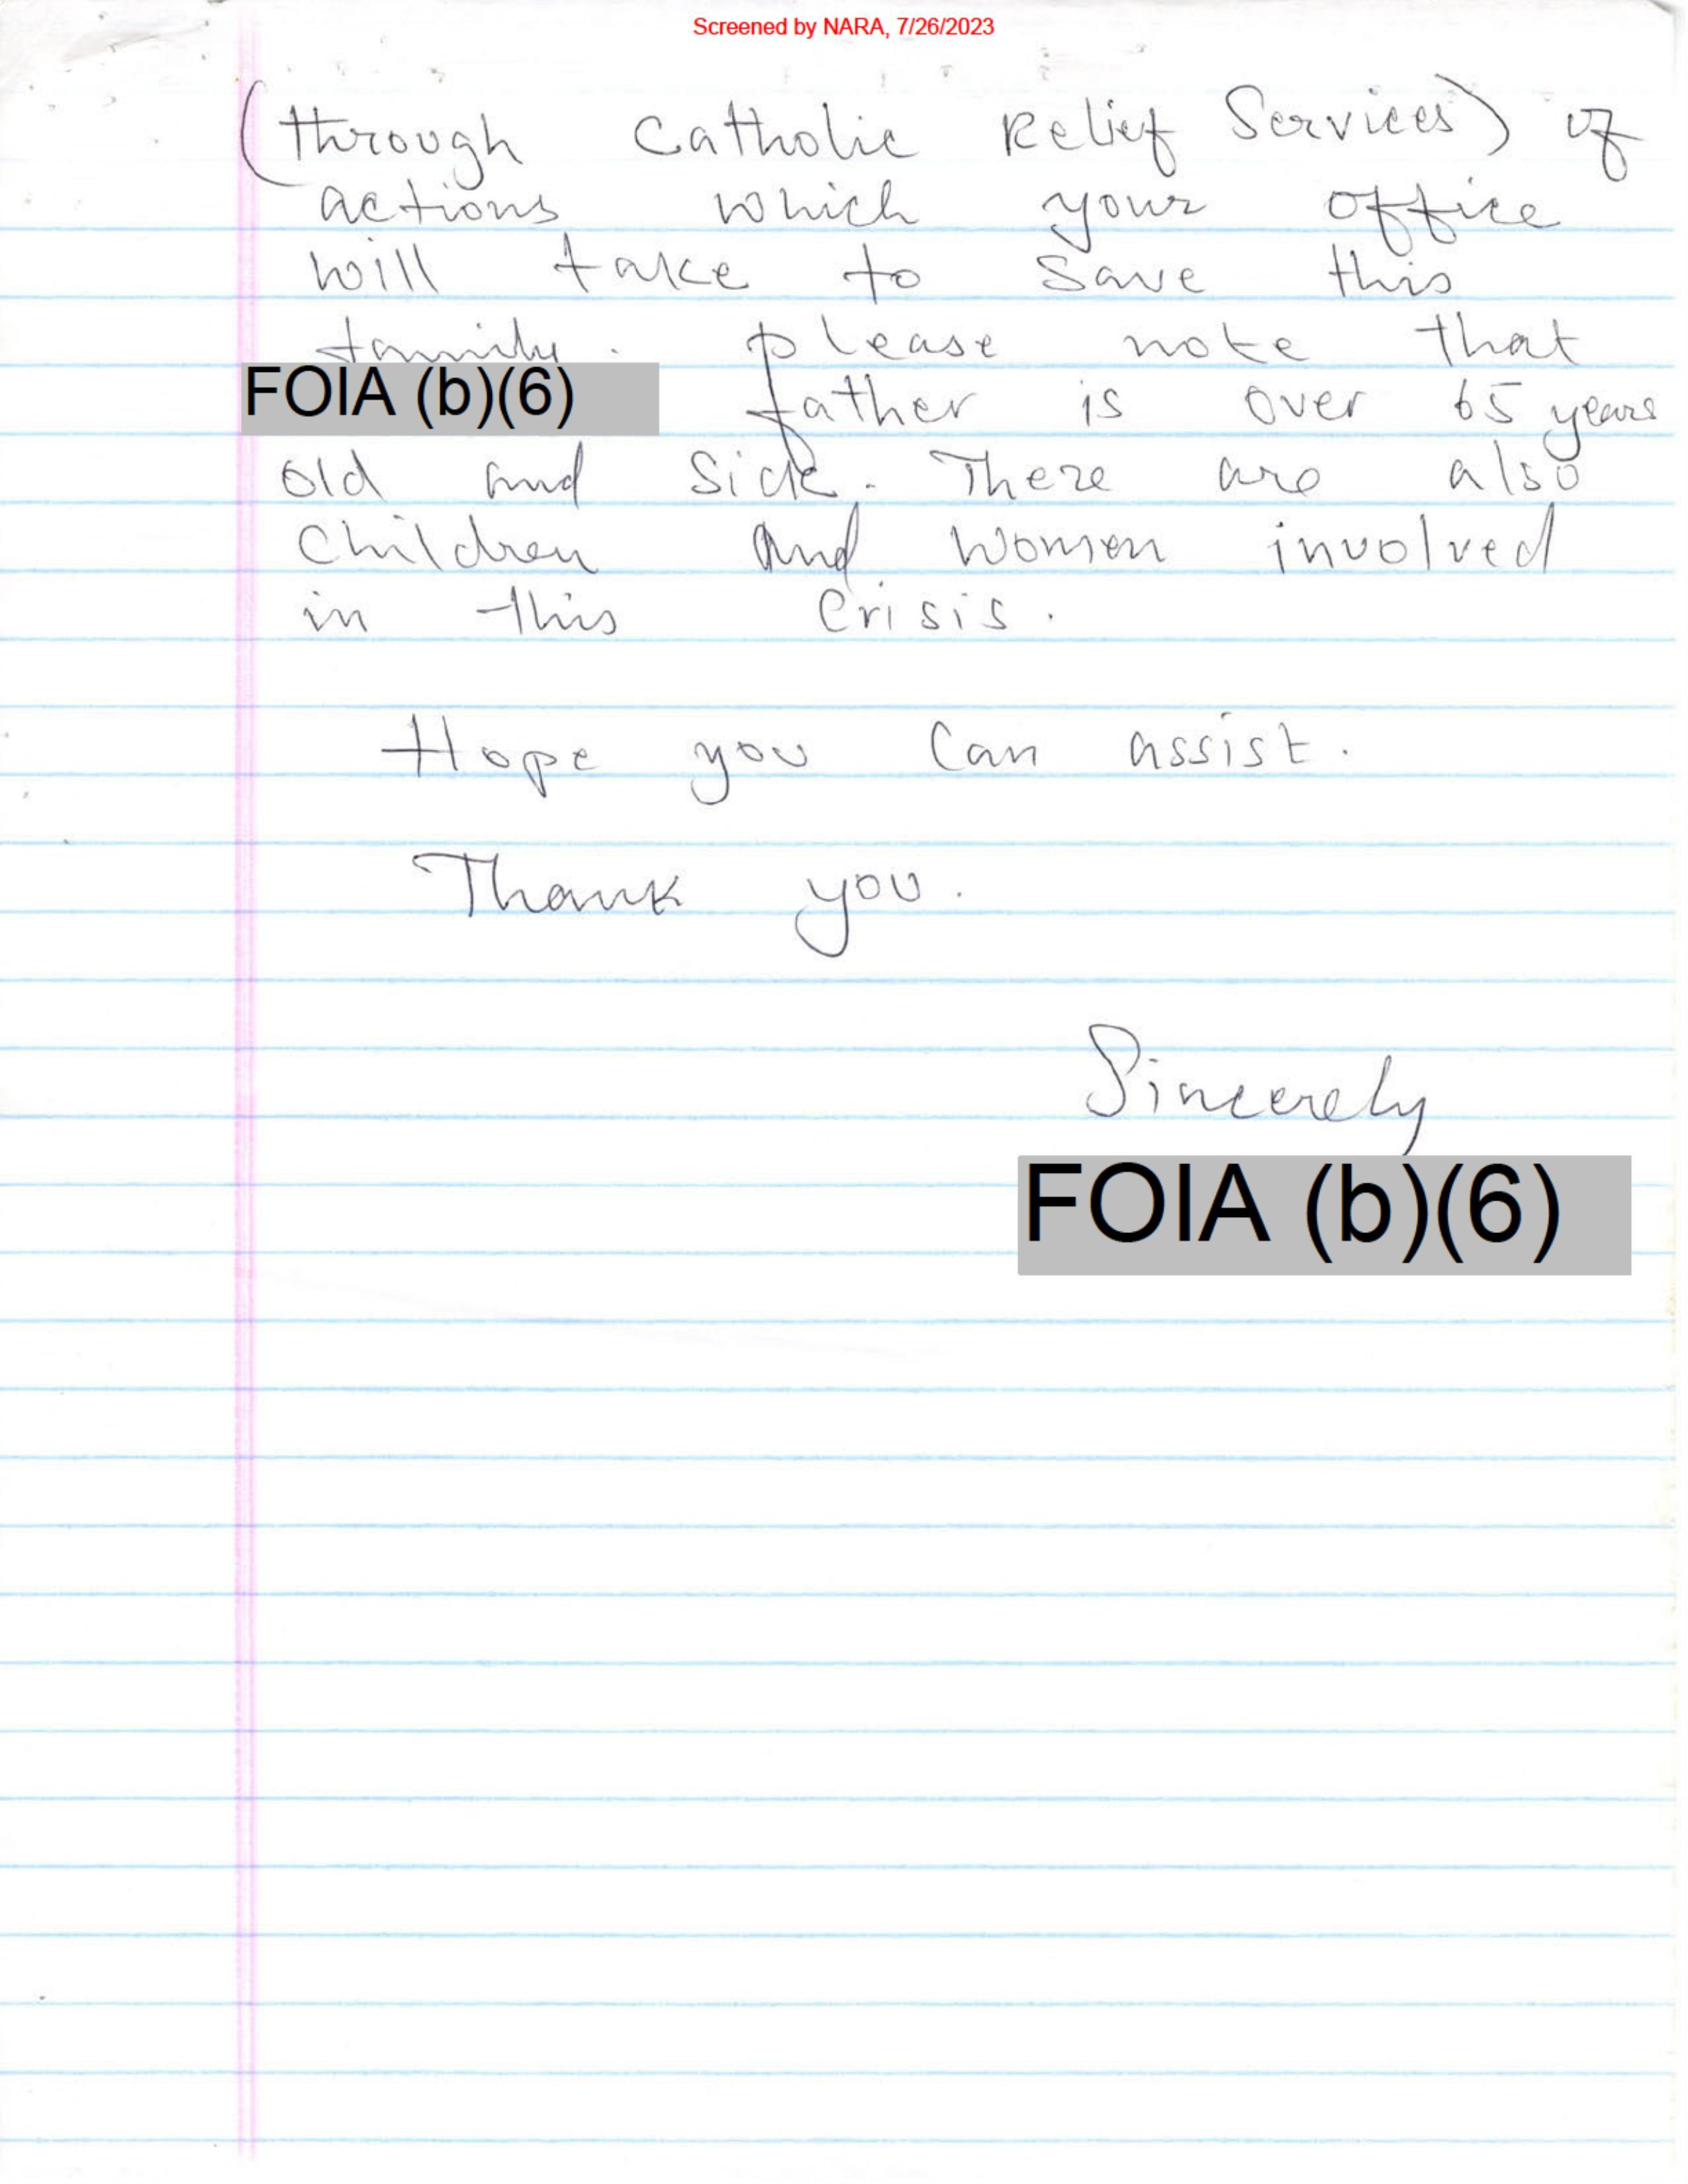 Screened by NARA, 7/26/2023
(through Catholic Relief Services) of
actions which your office
will take to save this
family. please note that
FOIA (b)(6) father is over 65 years
old and sick. There are also
children and women involved
in this crisis.
Hope you can assist.
Thank you.
Sincerely
FOIA (b)(6)